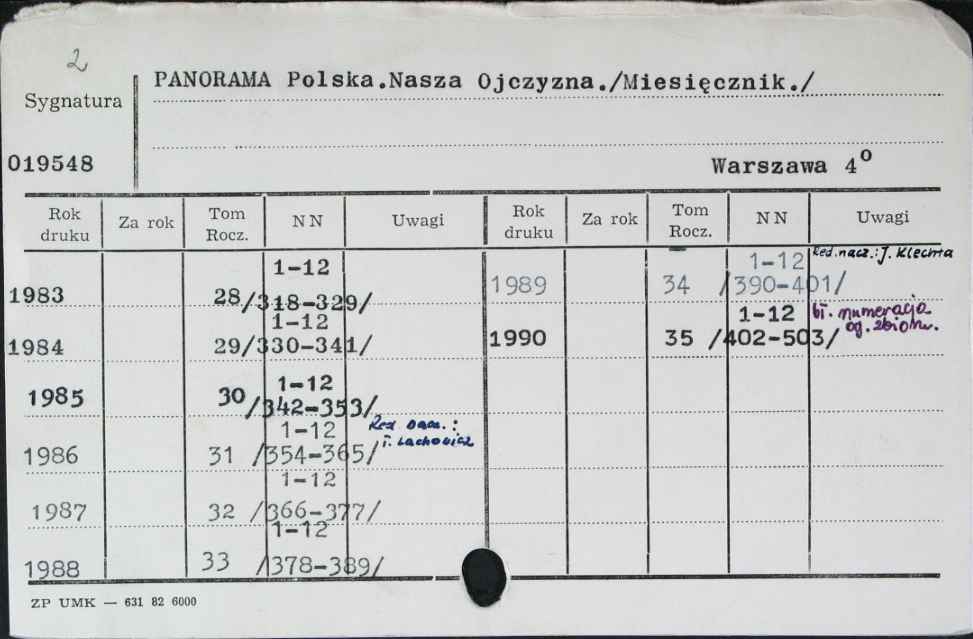 2
PANORAMA Polska.Nasza Ojczyzna./Miesięcznik./
Sygnatura
019548
Warszawa 4º
Rok druku Za rok Tom Rocz. NN Uwagi Rok druku Za rok Tom Rocz. NN Uwagi
1983 28 1-12 /318-329/
1984 29 1-12 /330-341/
1985 30 1-12 /342-353/
1986 31 1-12 /354-365/ Red. nacz.: T. Lachowicz
1987 32 1-12 /366-377/
1988 33 1-12 /378-389/
1989 34 1-12 /390-401/ Red. nacz.: J. Klechta
1990 35 1-12 /402-503/ bł. numeracja og. zbioru.
ZP UMK — 631 82 6000